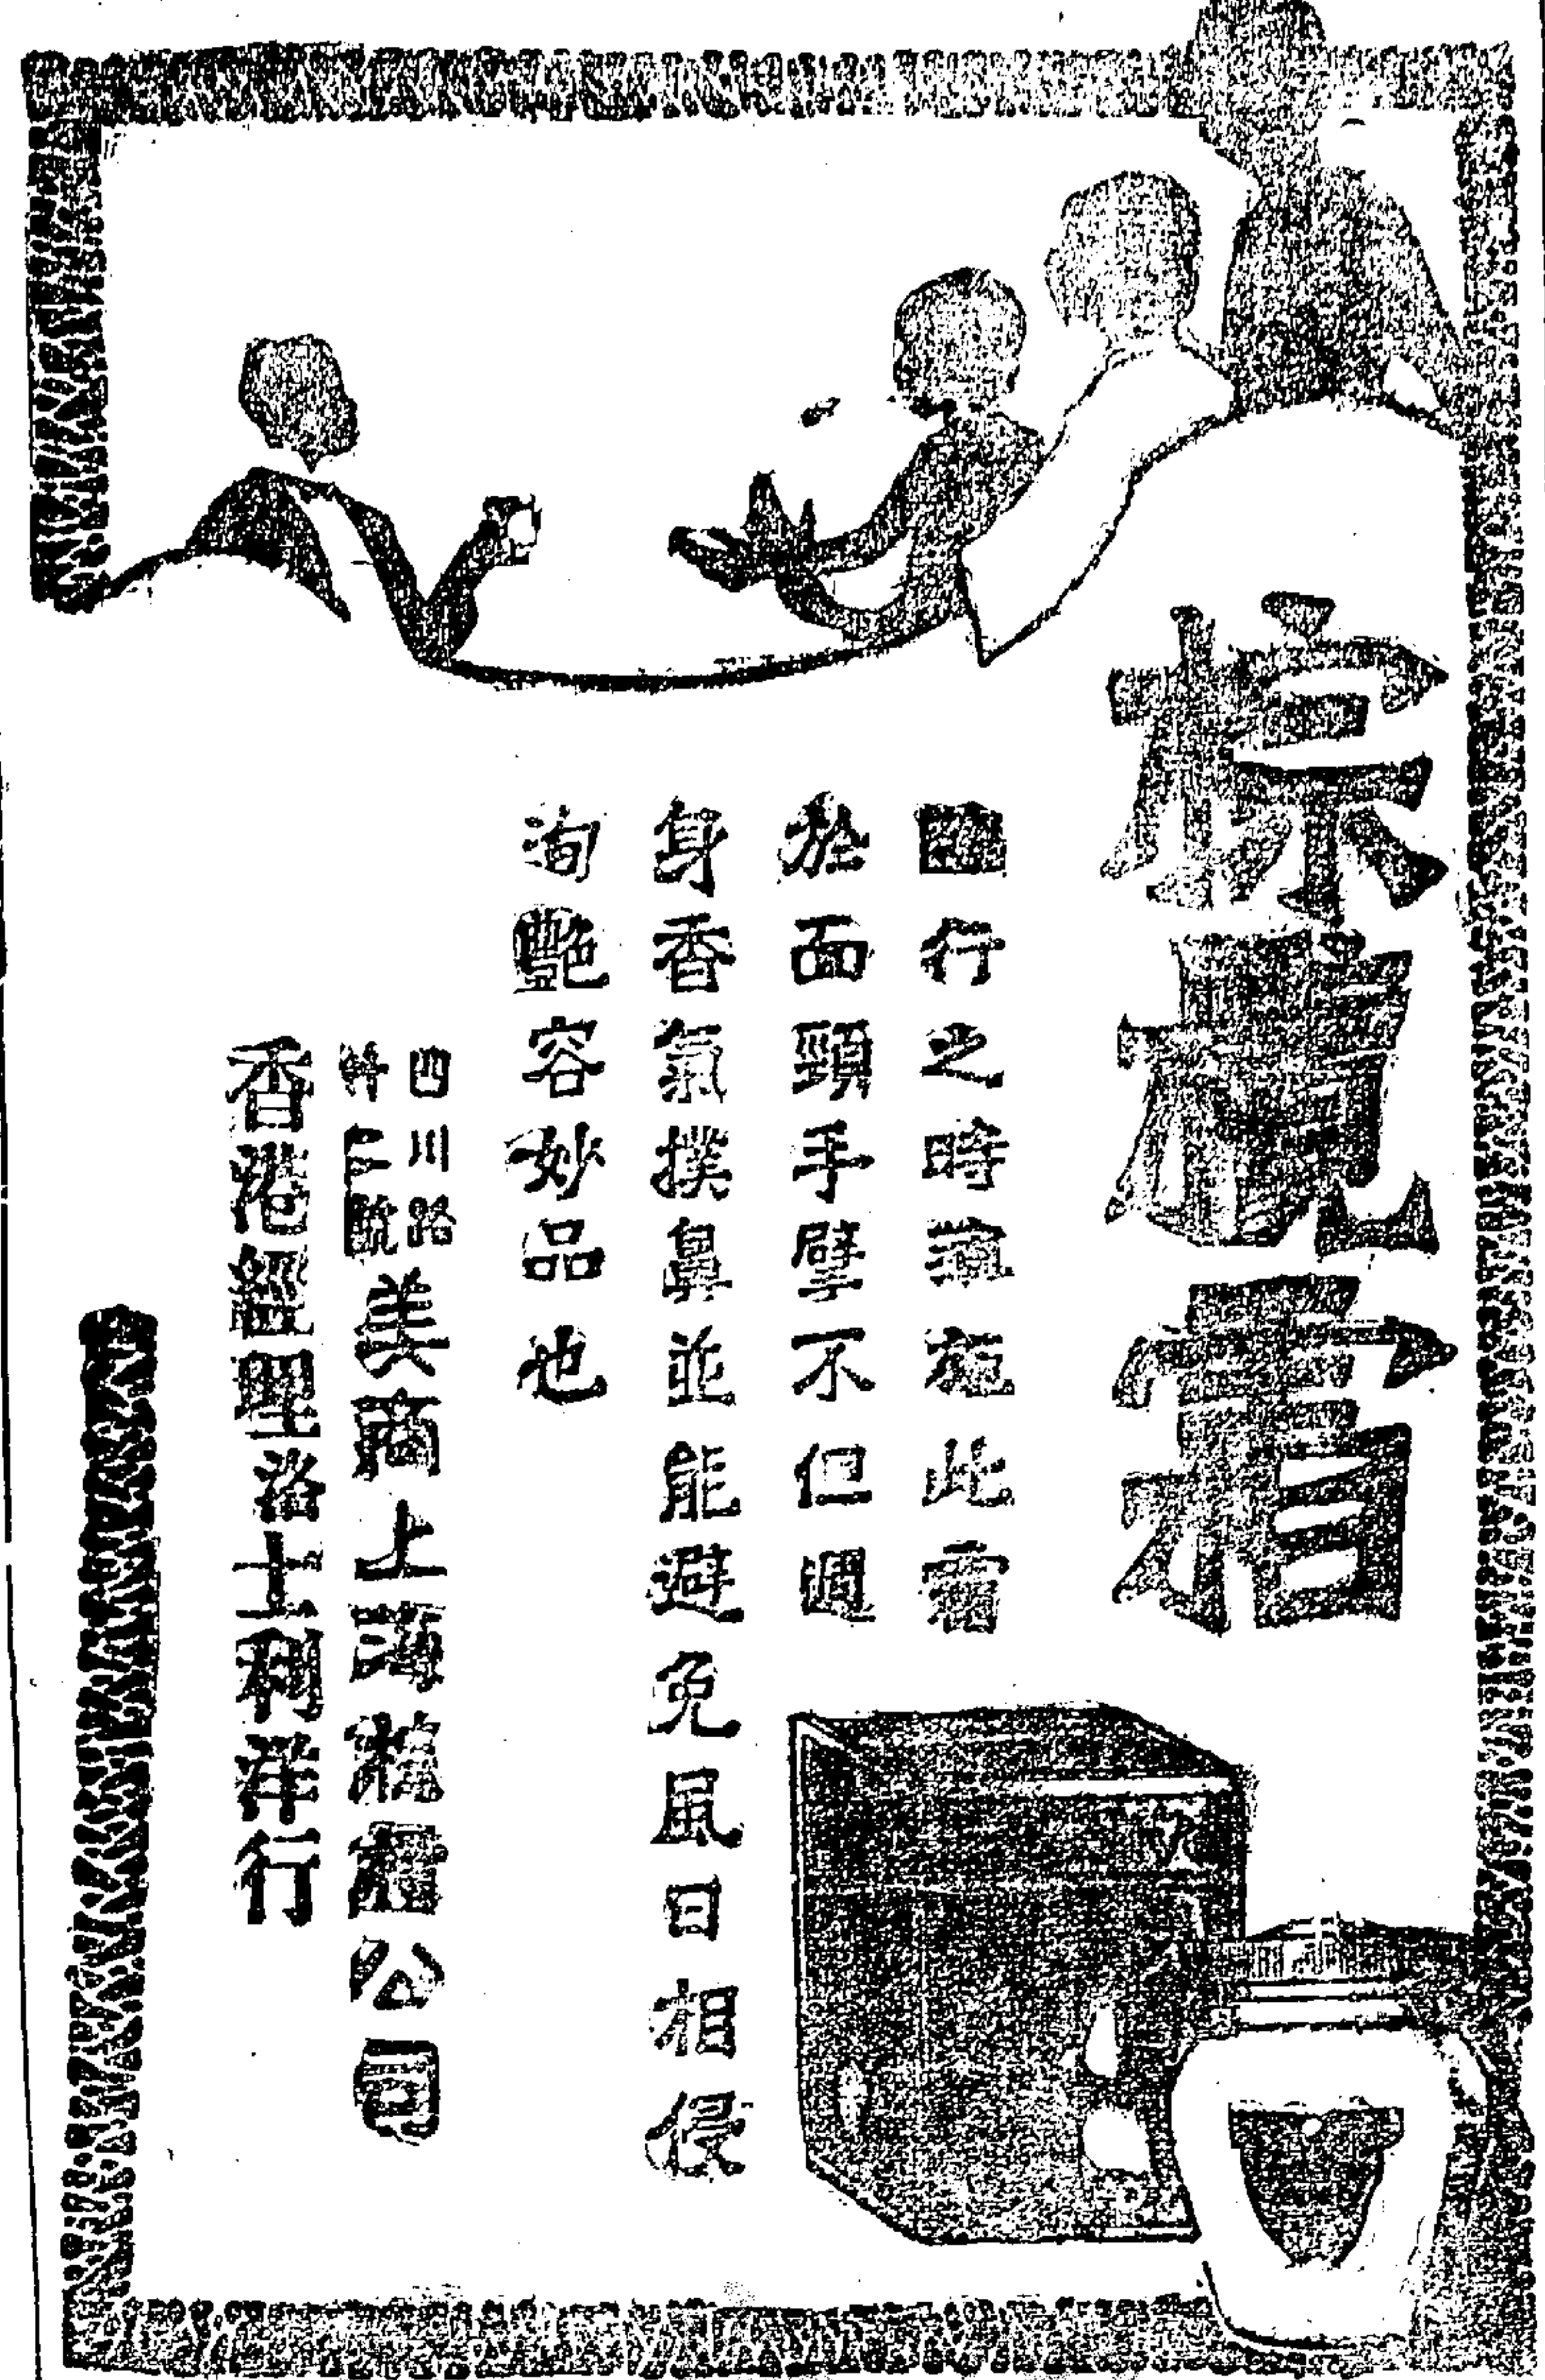 棕欖霜
臨行之時薄施此霜
於面頸手臂不但週
身香氣撲鼻並能避免風日相侵
洵艷容妙品也
四川路
美商上海棕欖公司
香港經理洛士利洋行